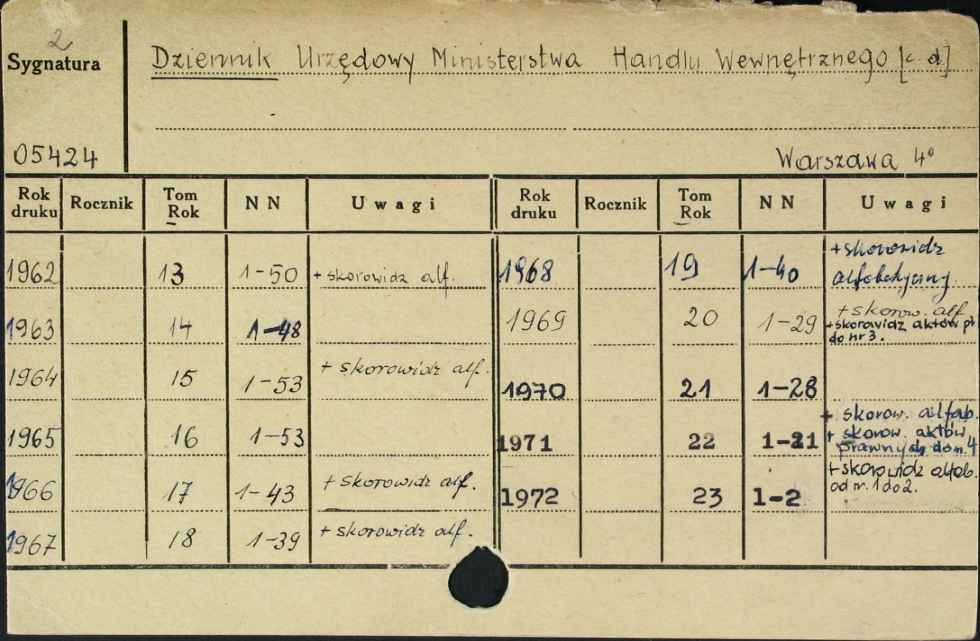 2
Sygnatura
Dziennik Urzędowy Ministerstwa Handlu Wewnętrznego [c d]
05424
Warszawa 4°
Rok druku Rocznik Tom Rok NN Uwagi Rok druku Rocznik Tom Rok NN Uwagi
1962 13 1-50 + skorowidz alf. 1968 19 1-40 + skorowidz alfabetyczny
1963 14 1-48 1969 20 1-29 + skorow. alf. + skorowidz aktów pr. do nr 3.
1964 15 1-53 + skorowidz alf. 1970 21 1-28
1965 16 1-53 1971 22 1-21 + skorow. alfab. + skorow. aktów prawnych do n. 4
1966 17 1-43 + skorowidz alf. 1972 23 1-2 + skorowidz alfab. od nr. 1 do 2.
1967 18 1-39 + skorowidz alf.